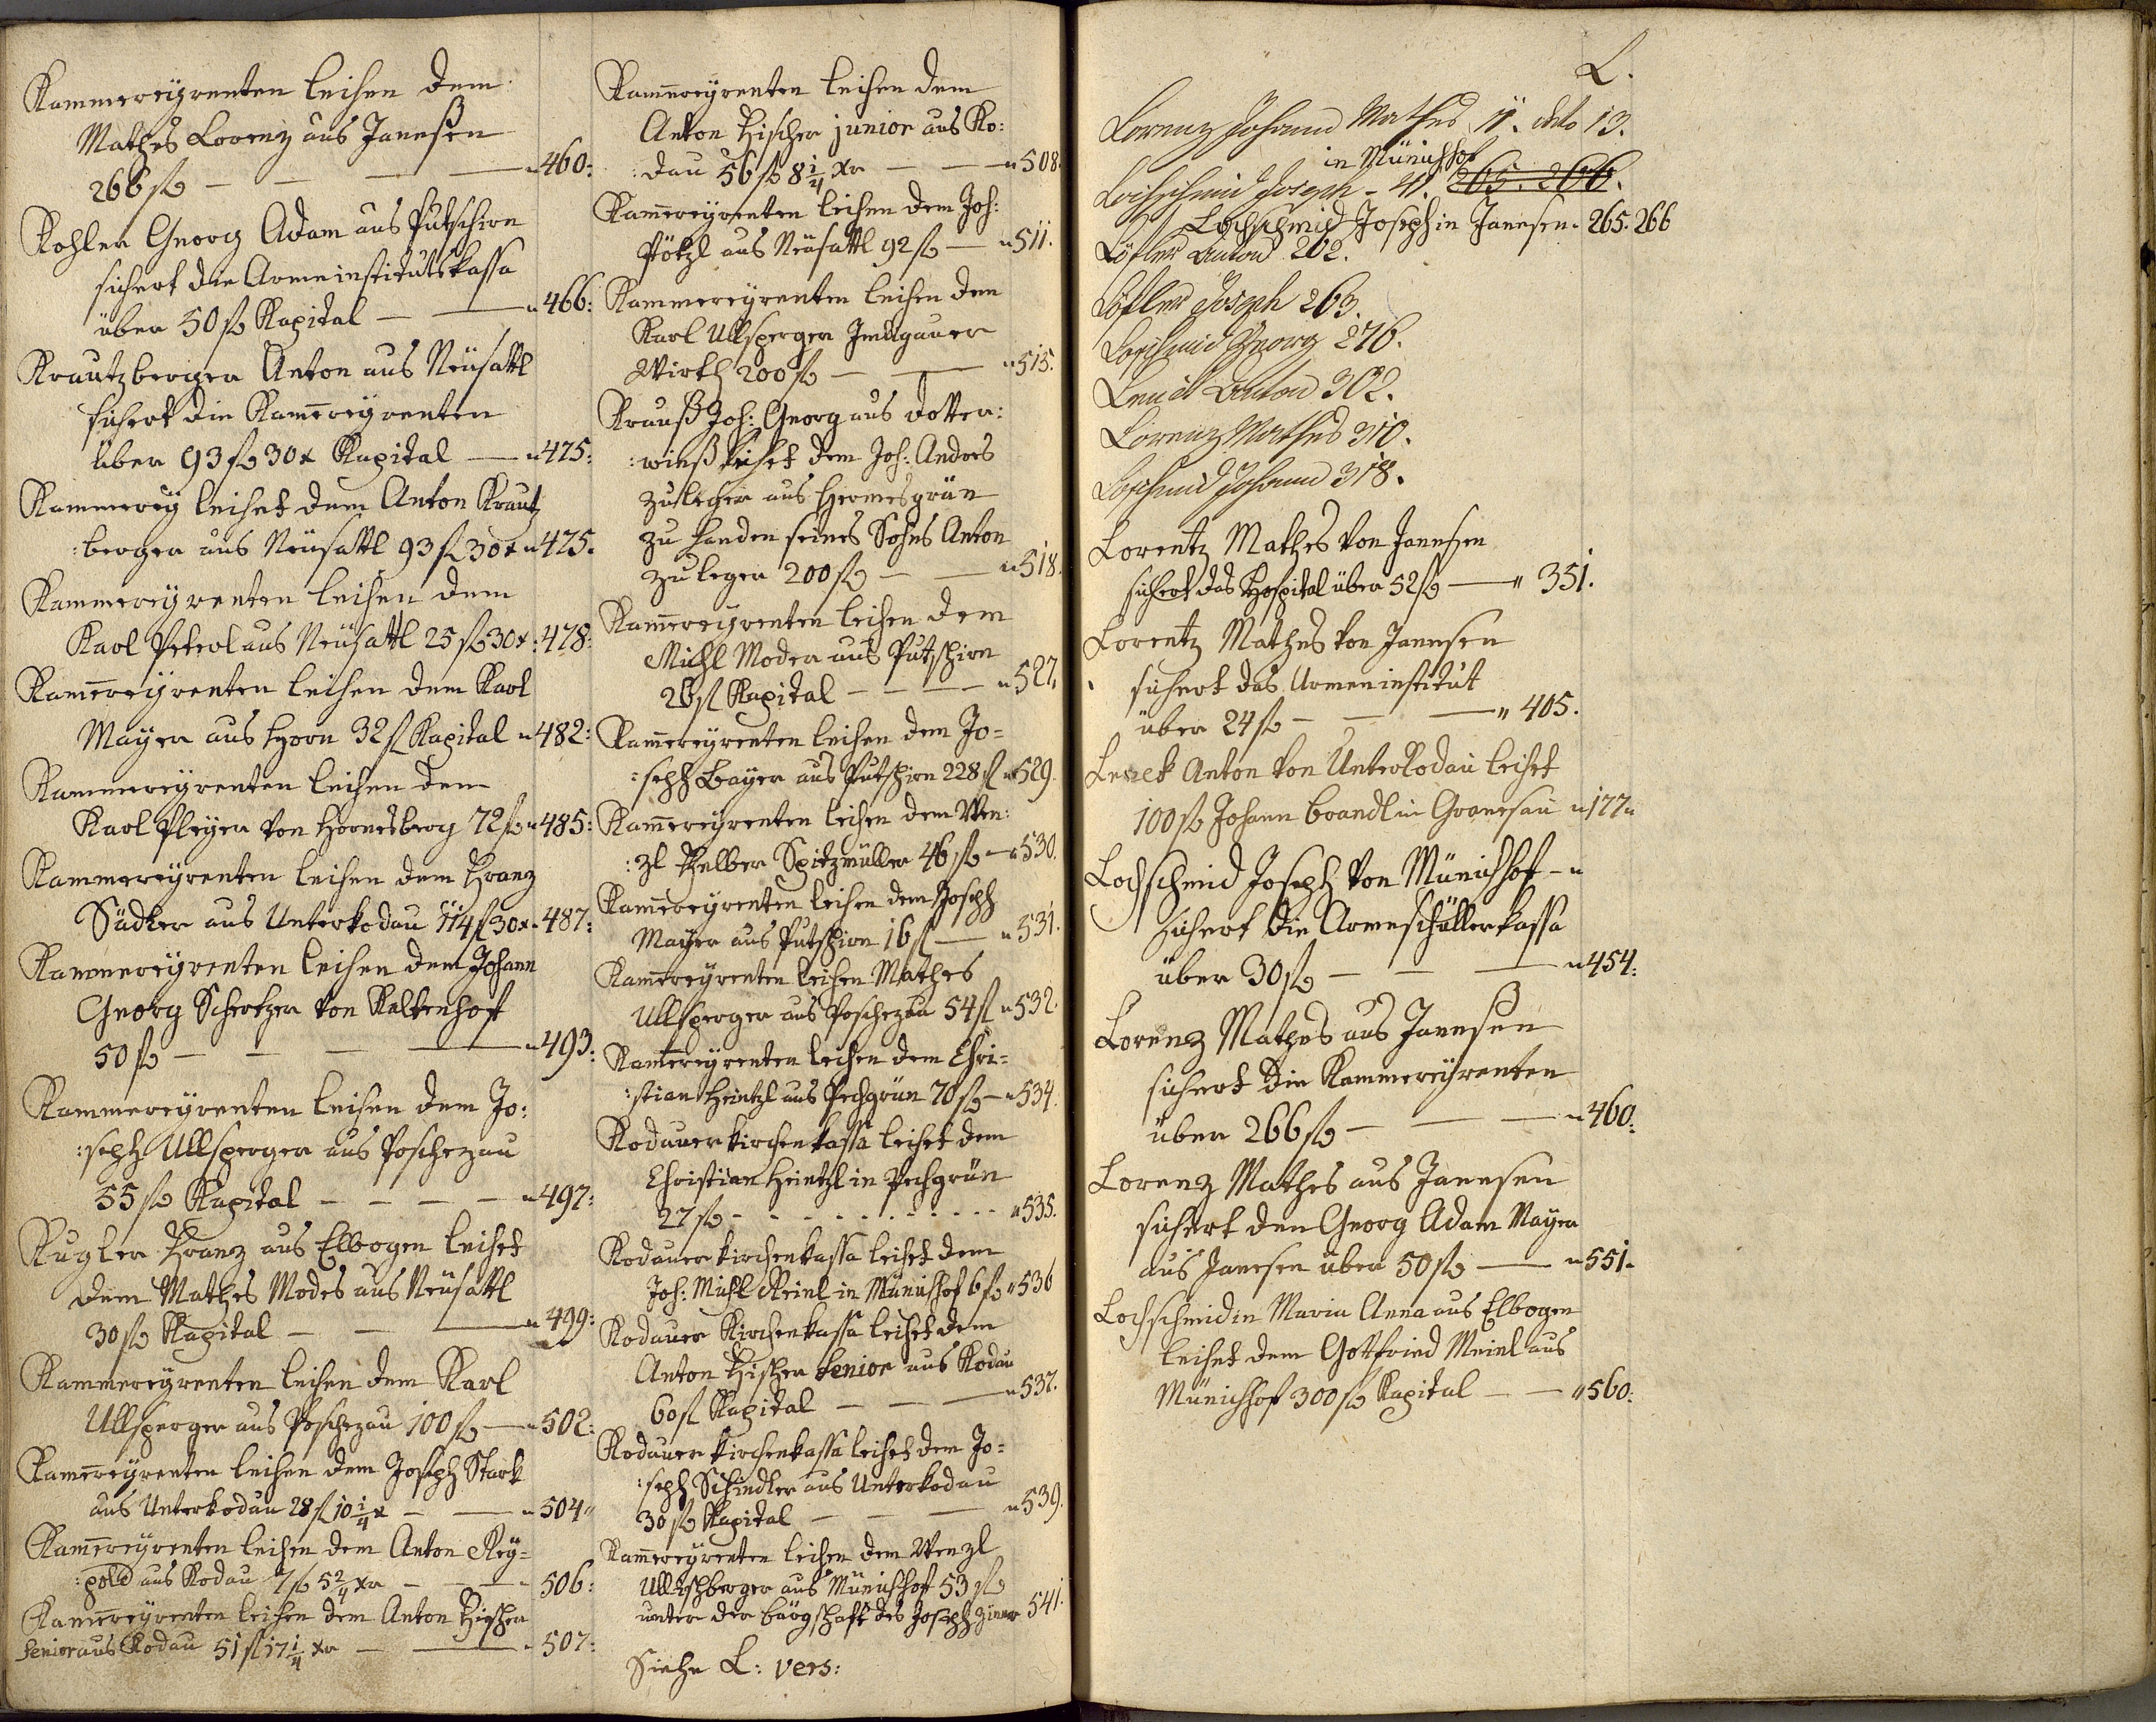 Kammereyrenten leihen dem
Mathes Lorenz aus Janeßen
266 fl — — — " 460:
Kohler Georg Adam aus Putschirn
sichert die Armeinstitutskassa
über 50 fl Kapital — — " 466:
Krautzberger Anton aus Neusattl
sichert die Kam̄ereyrenten
über 93 fl 30 x Kapital — " 475:
Kammerey leihet dem Anton Krautz
:berger aus Neusattl 93 fl 30 x " 475.
Kammereyrenten leihen dem
Karl Peterl aus Neusattl 25 fl 30 x : 478:
Kam̄ereyrenten leihen dem Karl
Mayer aus Horn 32 fl Kapital " 482:
Kammereyrenten leihen dem
Karl Pleyer von Hornesberg 72 fl " 485:
Kammereyrenten leihen dem Franz
Südler aus Unterkodau 114 fl 30 x " 487:
Kammereyrenten leihen dem Johann
Georg Schertzer von Kaltenhof
50 fl — — — " 493:
Kammereyrenten leihen dem Jo:
:seph Ullsperger aus Poschezau
55 fl Kapital — — — — " 497:
Kugler Franz aus Elbogen leihet
dem Mathes Moder aus Neusattl
30 fl Kapital — — — " 499:
Kammereyrenten leihen dem Karl
Ullsperger aus Poschezau 100 fl — " 502:
Kam̄ereyrenten leihen dem Joseph Stark
aus Unterkodau 28 fl 10 1/4 x — — " 504 "
Kam̄ereyrenten leihen dem Anton Rey=
:pold aus Kodau 7 fl 5 2/4 xr — — " 506:
Kam̄ereyrenten leihen dem Anton Fischer
Senior aus Kodau 51 fl 17 1/4 xr — — " 507:
Kam̄ereyrenten leihen dem
Anton Fischer junior aus Ko:
:dau 56 fl 8 1/4 xr — — " 508.
Kam̄ereyrenten leihen dem Joh:
Pötzl aus Neusattl 92 fl — " 511.
Kammereyrenten leihen dem
Karl Ullsperger Imligauer
Wirth 200 fl — — " 515.
Krauß Joh: Georg aus Dotter:
:wieß leihet dem Joh: Andres
Zuleger aus Hermesgrün
zu Handen seines Sohns Anton
Zuleger 200 fl — — " 518.
Kam̄ereyrenten leihen dem
Michl Moder aus Putschirn
26 fl Kapital — — — " 527.
Kam̄ereyrenten leihen dem Jo=
:seph Bayer aus Putschirn 228 fl " 529.
Kam̄ereyrenten leihen dem Wen:
:zl Felber Spitzmüller 46 fl — " 530.
Kam̄ereyrenten leihen dem Joseph
Mayer aus Putschirn 16 fl — " 531.
Kam̄ereyrenten leihen Mathes
Ullsperger aus Poschezau 54 fl " 532.
Kam̄ereyrenten leihen dem Chri=
:stian Heintzl aus Pechgrün 70 fl — " 534.
Kodauer Kirchenkassa leihet dem
Christian Heintzl in Pechgrün
27 fl - - - - - - - - - " 535.
Kodauer Kirchenkassa leihet dem
Joh: Michl Reinl in Münichhof 6 fl " 536
Kodauer Kirchenkassa leihet dem
Anton Fischer Senior aus Kodau
60 fl Kapital — — — " 537.
Kodauer Kirchenkassa leihet dem Jo=
:seph Schindler aus Unterkodau
30 fl Kapital — — — " 539.
Kam̄ereyrenten leihen dem Wenzl
Ullschberger aus Münichhof 53 fl
unter der Bürgschaft des Joseph Ziener 541.
Siehe L: vers:
L.
Lorenz Johann Mathes 11. deto 13.
in Münichhof
Lochschmid Joseph - 41. 265. 266.
Lochschmid Joseph in Janesen. 265. 266
Löfler Anton 262.
Löfler Joseph 263.
Lochschmid Georg 276.
Anton 302.
Lorenz Mathes 310.
Lochschmid Johann 318.
Lorentz Mathes von Janesen
sichert das Hospital über 52 fl — " 351.
Lorentz Mathes von Janesen
sichert das Armeninstitut
über 24 fl — — — " 405.
Anton von Unterkodau leihet
100 fl Johann Brandl in Granesau " 177 "
Lochschmid Joseph von Münichhof - "
sichert die Armeschüllerkassa
über 30 fl — — — " 454:
Lorenz Mathes aus Janesen
sichert die Kammereyrenten
über 266 fl — — — " 460:
Lorenz Mathes aus Janesen
sichert den Georg Adam Mayer
aus Janesen über 50 fl — " 551.
Lochschmidin Maria Anna aus Elbogen
leihet dem Gottfried Meinl aus
Münichhof 300 fl Kapital — — " 560: